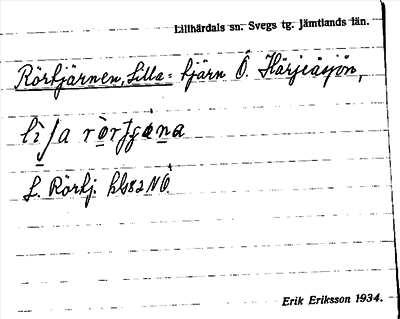 Lillhärdals sn. Svegs tg. Jämtlands län.
Rörtjärnen, Lilla = tjärn Ö. Härjeåsjön,
L. Rörtj. hbl 82 NÖ
Erik Eriksson 1934.